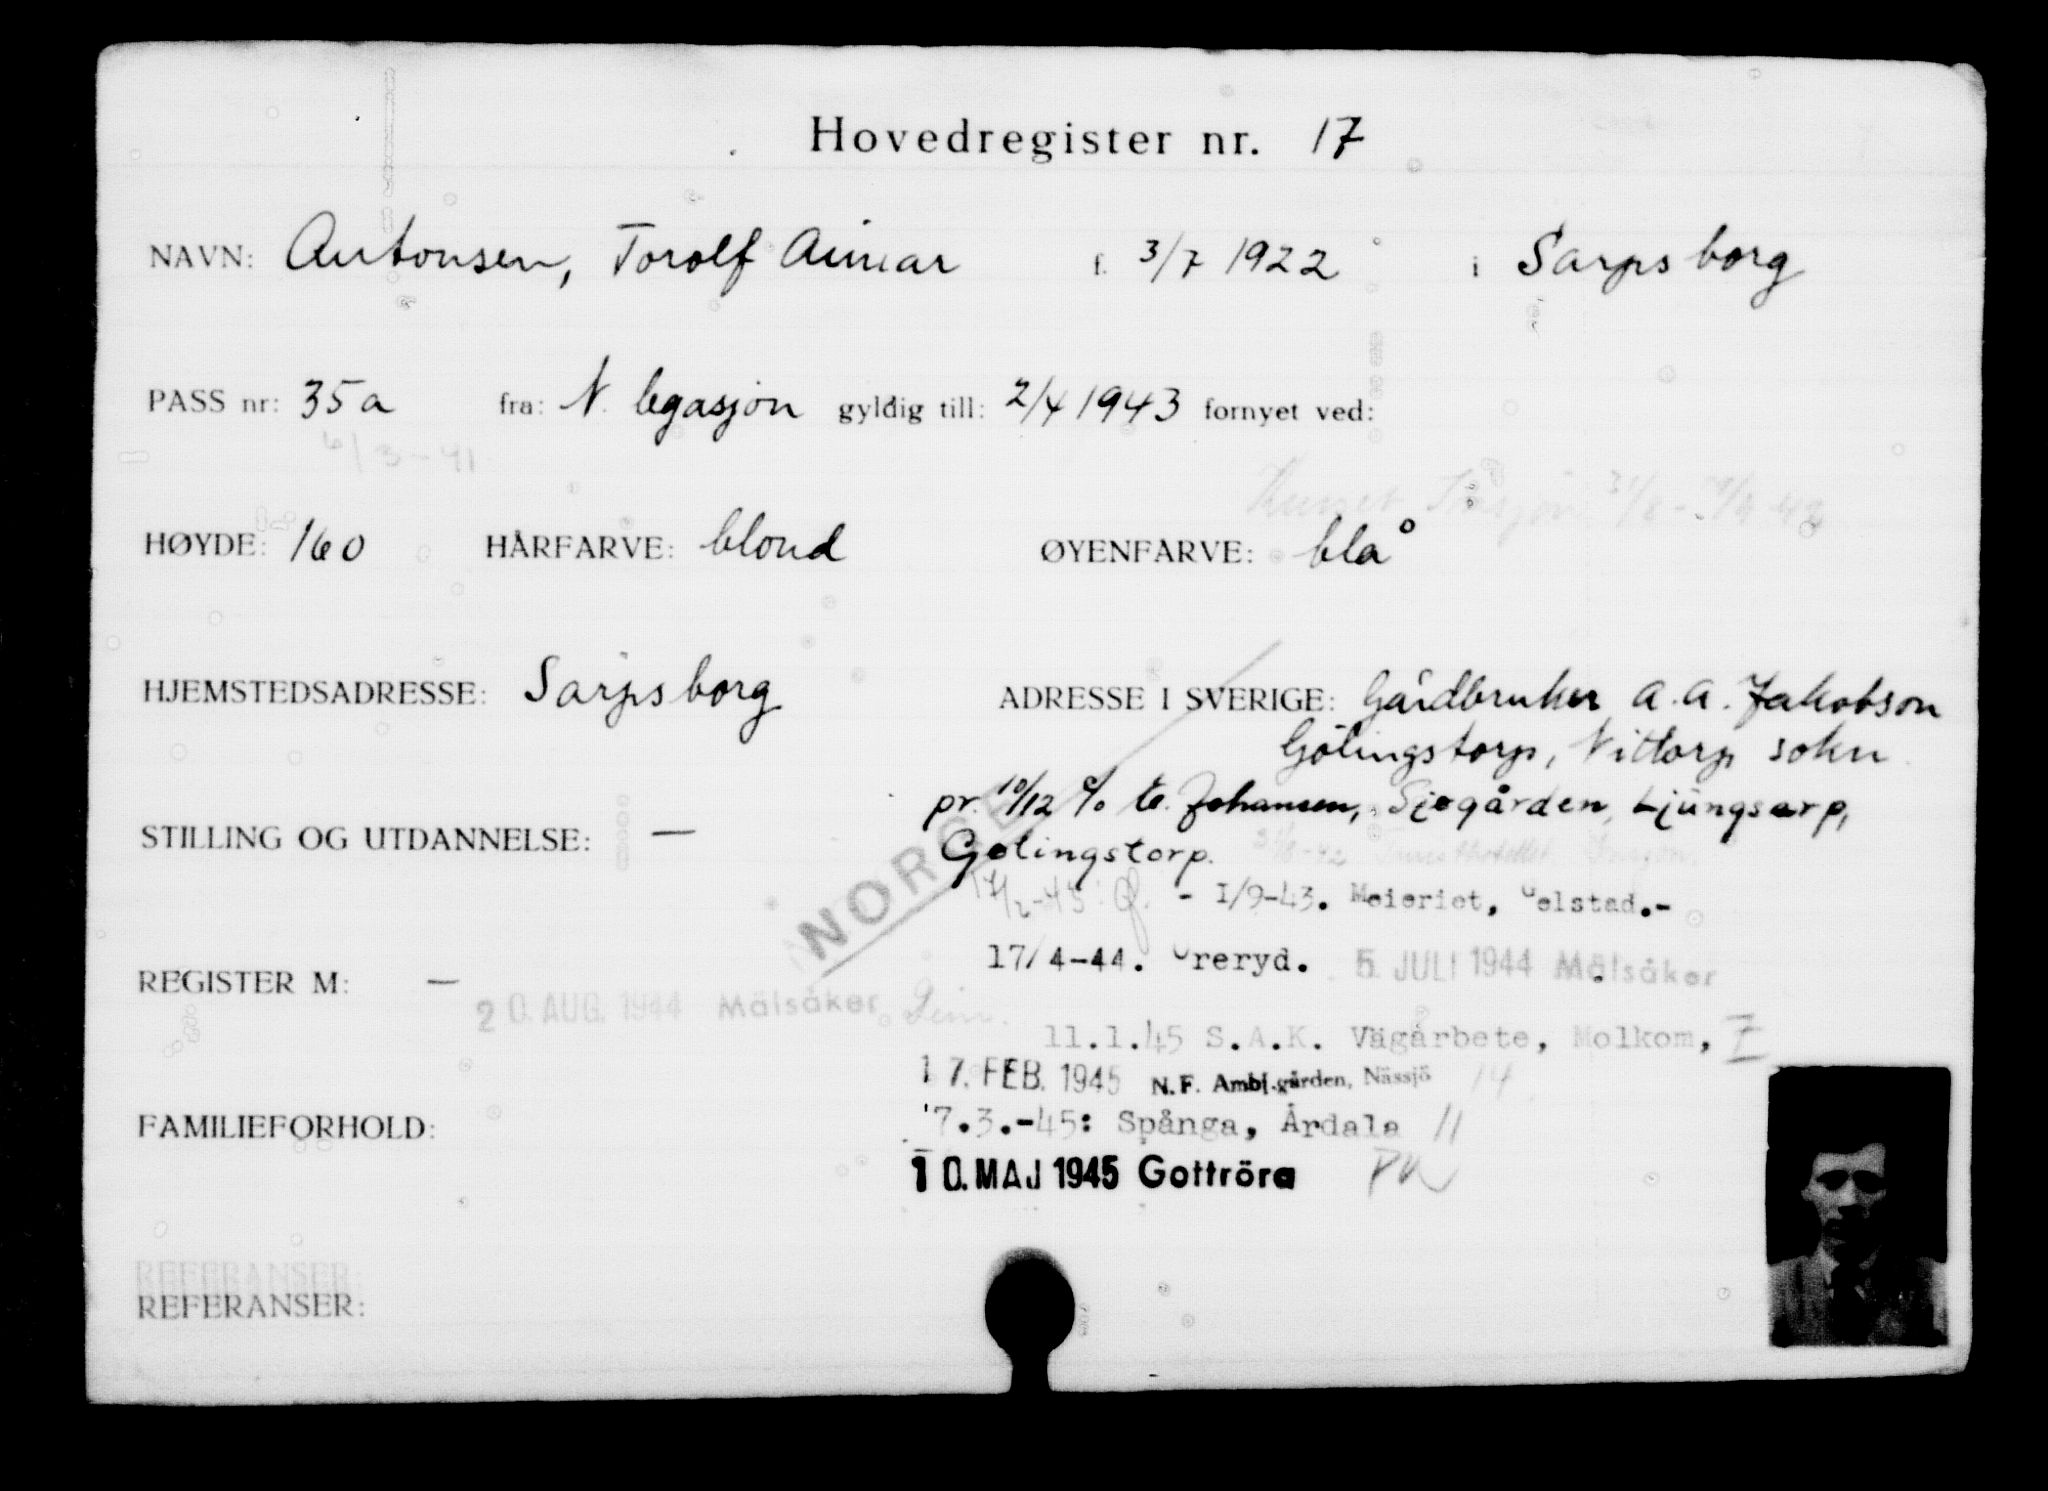 Hovedregister nr. 17
NAVN: Antonsen, Torolf Aimar f. 3/7 1922 i Sarpsborg
PASS nr: 35a fra: N. legasjon gyldig till: 2/4 1943 fornyet ved:
6/3-41
HØYDE: 160 HÅRFARVE: blond ØYENFARVE: blå
HJEMSTEDSADRESSE: Sarpsborg ADRESSE I SVERIGE: Gårdbruker A. A. Jakobson
Gölingstorp, Nittorp sokn
pr. 10/12 c/o E. Johansen, Sjøgården, Ljungsarp,
STILLING OG UTDANNELSE: —
Gølingstorp.
NORGE
- I/9-43. Meieriet, Gelstad.-
17/4-44. Öreryd. 5. JULI 1944 Mälsåker
REGISTER M: —
20. AUG. 1944 Mälsåker
11.1.45 S.A.K. Vägarbete, Molkom, I
17. FEB. 1945 N.F. Ambl.gården, Nässjö 14
FAMILIEFORHOLD:
7.3.-45: Spånga, Årdala 11
10. MAJ 1945 Gottröra
REFERANSER:
REFERANSER: